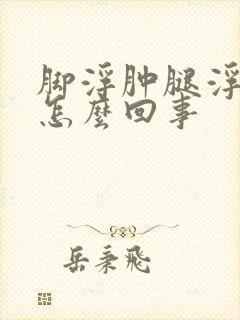 脚浮肿腿浮
怎麼回事
岳秉飛